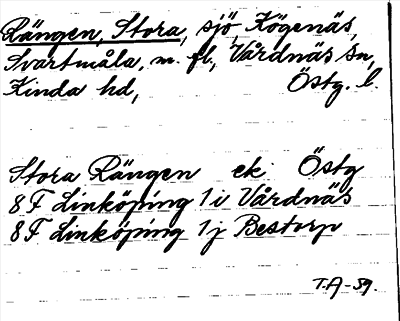 Rängen, Stora, sjö, Kögenäs,
Svartmåla, m. fl., Vårdnäs sn,
Kinda hd, Östg. l.
Stora Rängen ek Östg
8F Linköping 1i Vårdnäs
8F Linköping 1j Bestorp
T.A-89.